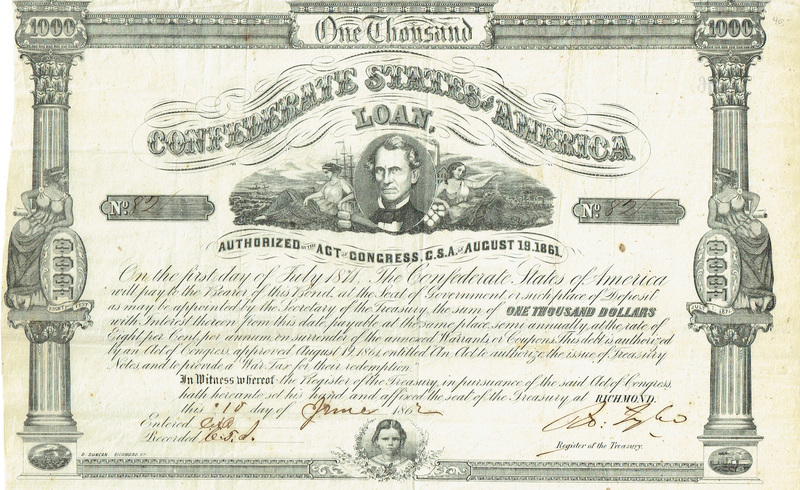 One Thousand
1000
1000
CONFEDERATE STATES of AMERICA
LOAN,
No. 82
No. 82
AUTHORIZED BY THE ACT OF CONGRESS, C.S.A. OF AUGUST 19. 1861.
1000
1000
On the first day of July 1871, The Confederate States of America
will pay to the Bearer of this Bond, at the Seat of Government, or such place of Deposit
as may be appointed by the Secretary of the Treasury, the sum of ONE THOUSAND DOLLARS
with Interest thereon from this date, payable at the same place, semi annually, at the rate of
Eight per Cent, per annum, on surrender of the annexed Warrants or Coupons. This debt is authorized
by an Act of Congress, approved August 19, 1861, entitled An Act to authorize the issue of Treasury
Notes, and to provide a War Tax for their redemption.
In Witness whereof the Register of the Treasury, in pursuance of the said Act of Congress,
hath hereunto set his hand and affixed the seal of the Treasury at RICHMOND,
this 10 day of June 1862
Entered
Recorded
Ro: Tyler
Register of the Treasury.